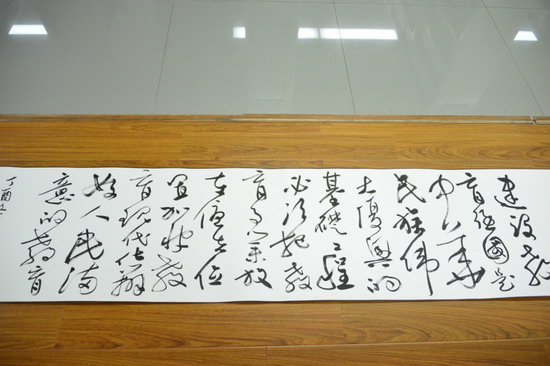 建设教
育强國是
中华
民族伟
大復興的
基礎工程
必须把教
育事业放
在优先位
置加快教
育现代化辦
好人民满
意的教育
丁酉冬